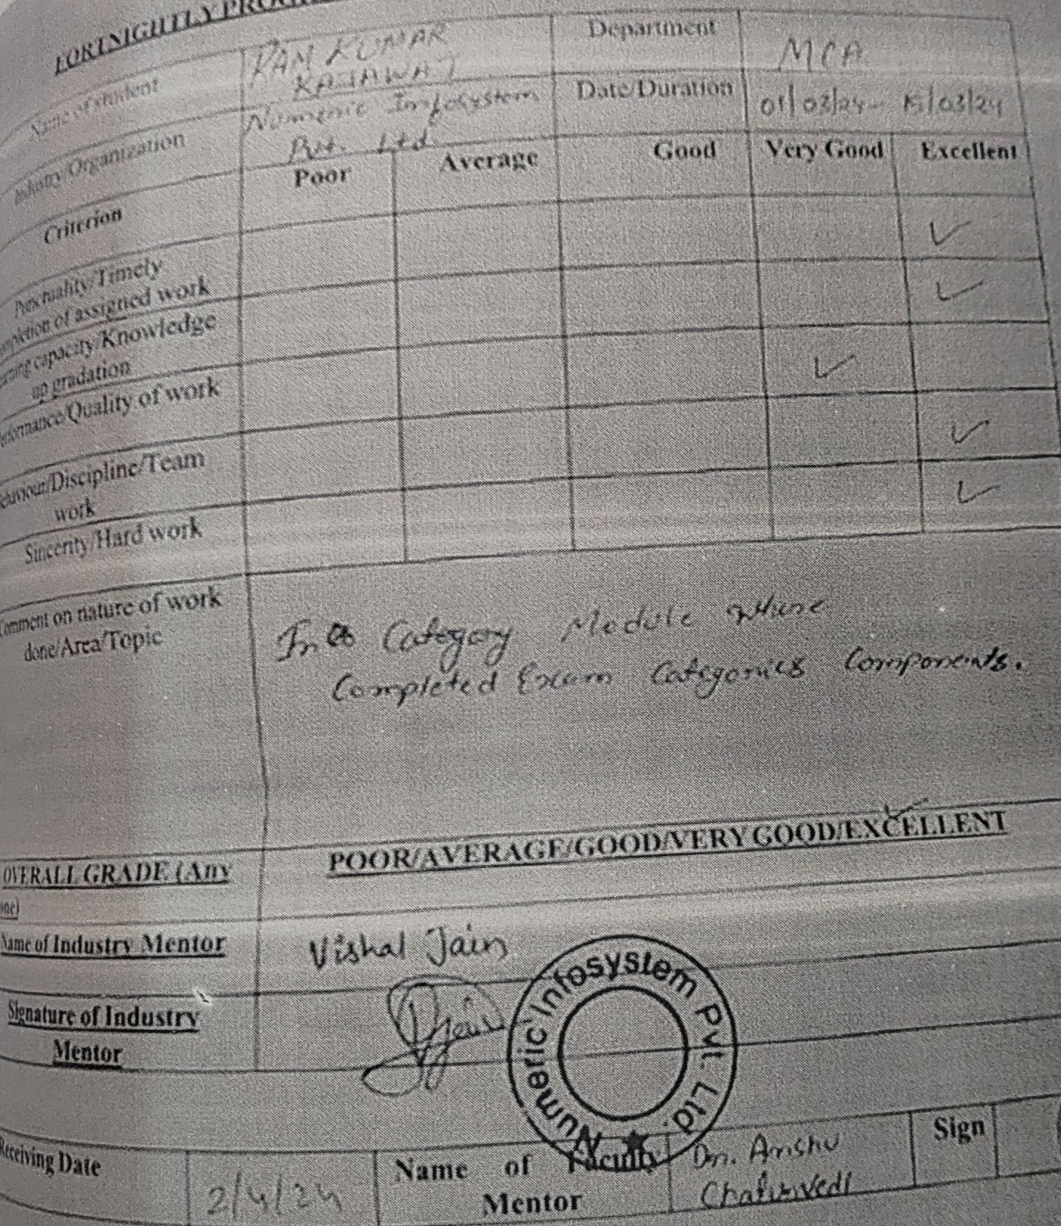 FORTNIGHTLY
Name of student
RAM KUMAR
RAJAWAT
Department
MCA
Industry/Organization
Numeric Infosystem
Pvt. Ltd.
Date/Duration
01/03/24- 15/03/24
Criterion
Poor
Average
Good
Very Good
Excellent
Punctuality/Timely
of assigned work
✓
capacity/Knowledge
up gradation
✓
/Quality of work
✓
/Discipline/Team
work
✓
Sincerity/Hard work
✓
Comment on nature of work
done/Area/Topic
In Category Module where
Completed Exam Categories Components.
OVERALL GRADE (Any
one)
POOR/AVERAGE/GOOD/VERY GOOD/EXCELLENT
Name of Industry Mentor
Vishal Jain
Signature of Industry
Mentor
Numeric Infosystem Pvt. Ltd.
Receiving Date
2/4/24
Name of Faculty
Mentor
Dr. Anshu
Chaturvedi
Sign